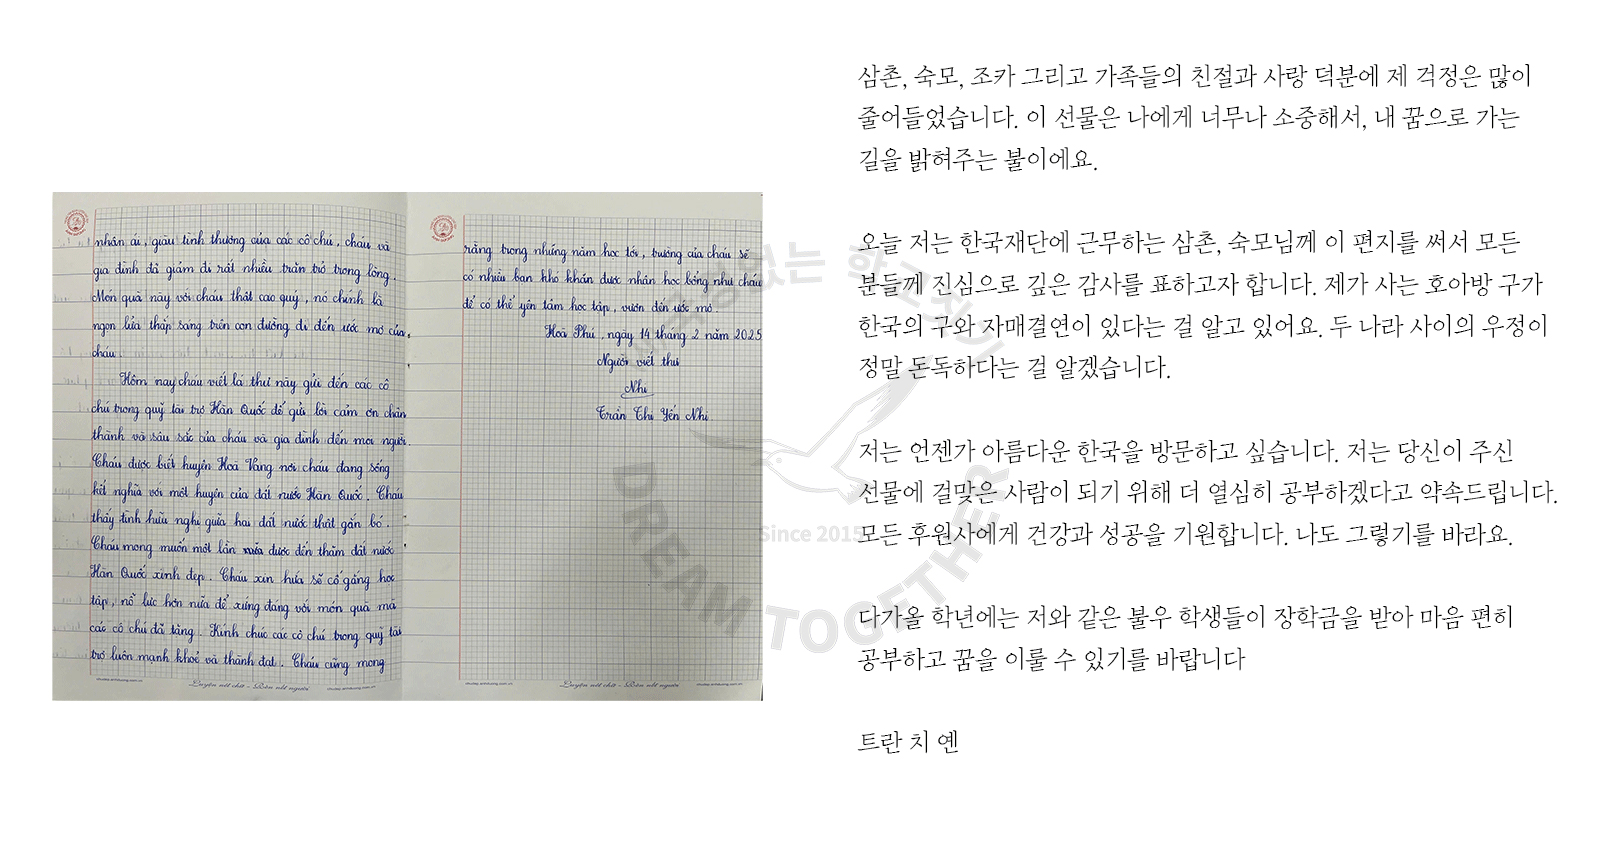 nhân ái, giàu tình thương của các cô chú, cháu và
gia đình đã giảm đi rất nhiều trăn trở trong lòng.
Món quà này với cháu thật cao quý, nó chính là
ngọn lửa thắp sáng trên con đường đi đến ước mơ của
cháu.
Hôm nay cháu viết lá thư này gửi đến các cô
chú trong quỹ tài trợ Hàn Quốc để gửi lời cảm ơn chân
thành và sâu sắc của cháu và gia đình đến mọi người.
Cháu được biết huyện Hoà Vang nơi cháu đang sống
kết nghĩa với một huyện của đất nước Hàn Quốc. Cháu
thấy tình hữu nghị giữa hai đất nước thật gắn bó.
Cháu mong muốn một lần được đến thăm đất nước
Hàn Quốc xinh đẹp. Cháu xin hứa sẽ cố gắng học
tập, nỗ lực hơn nữa để xứng đáng với món quà mà
các cô chú đã tặng. Kính chúc các cô chú trong quỹ tài
trợ luôn mạnh khoẻ và thành đạt. Cháu cũng mong
Luyện nét chữ - Rèn nết người
rằng trong những năm học tới, trường của cháu sẽ
có nhiều bạn khó khăn được nhận học bổng như cháu
để có thể yên tâm học tập, vươn đến ước mơ.
Hoà Phú, ngày 14 tháng 2 năm 2025
Người viết thư
Nhi
Trần Thị Yến Nhi
Luyện nét chữ - Rèn nết người
삼촌, 숙모, 조카 그리고 가족들의 친절과 사랑 덕분에 제 걱정은 많이
줄어들었습니다. 이 선물은 나에게 너무나 소중해서, 내 꿈으로 가는
길을 밝혀주는 불이에요.
오늘 저는 한국재단에 근무하는 삼촌, 숙모님께 이 편지를 써서 모든
분들께 진심으로 깊은 감사를 표하고자 합니다. 제가 사는 호아방 구가
한국의 구와 자매결연이 있다는 걸 알고 있어요. 두 나라 사이의 우정이
정말 돈독하다는 걸 알겠습니다.
저는 언젠가 아름다운 한국을 방문하고 싶습니다. 저는 당신이 주신
선물에 걸맞은 사람이 되기 위해 더 열심히 공부하겠다고 약속드립니다.
모든 후원사에게 건강과 성공을 기원합니다. 나도 그렇기를 바라요.
다가올 학년에는 저와 같은 불우 학생들이 장학금을 받아 마음 편히
공부하고 꿈을 이룰 수 있기를 바랍니다
트란 치 옌
Since 2015
DREAM TOGETHER